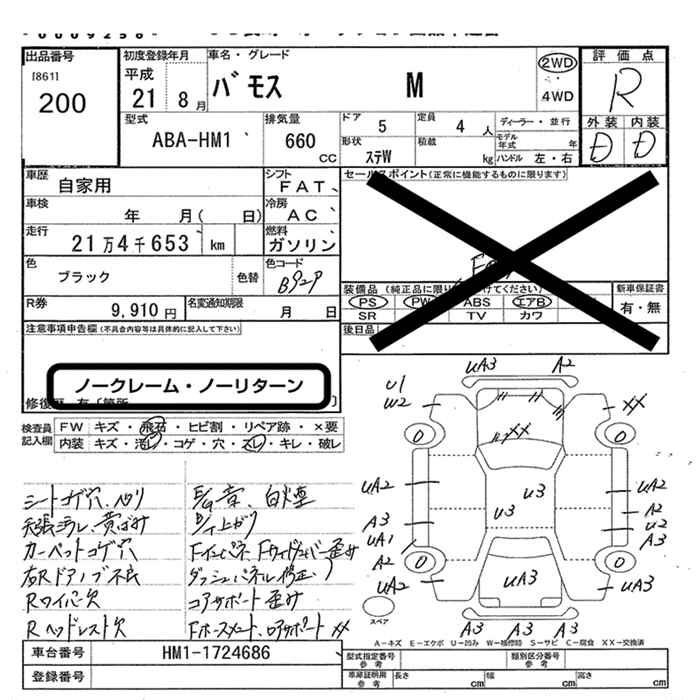 出品番号
[861]
200
初度登録年月
平成
21 8月
車名・グレード
バモス M
2WD
4WD
評価点
R
外装 内装
D D
型式
ABA-HM1
排気量
660
cc
ドア
5
定員
4 人
ディーラー・並行
形状
ステW
積載
kg
モデル年式 年
ハンドル 左・右
車歴
自家用
シフト
FAT
セールスポイント(正常に機能するものに限ります)
車検
年 月( 日)
冷房
AC
走行
21万4千653 km
燃料
ガソリン
色
ブラック
色替
色コード
B92P
装備品
PS PW ABS エアB
SR TV カワ
新車保証書
有・無
R券
9,910円
名変通知期限
月 日
後日品
注意事項申告欄(不具合内容等は具体的に記入して下さい)
ノークレーム・ノーリターン
検査員記入欄
FW キズ・飛石・ヒビ割・リペア跡・×要
内装 キズ・汚レ・コゲ・穴・スレ・キレ・破レ
シートコゲ穴、ヘリ
天張シラレ、黄ばみ
カーペットコゲ穴
右Rドアノブ不良
Rワイパー欠
Rヘッドレスト欠
E/G音、白煙
E/G上がり
ダッシュパネル修正
コアサポート歪み
UA3 A2
U1
W2
XX
XX
UA2 U3 U3 UA2
A2
A3 U2
UA1 A3
A2
UA2 UA3 UA3
A3 A3 A3
スペア
A-キズ E-エクボ U-凹み W-補修跡 S-サビ C-腐食 XX-交換済
車台番号
HM1-1724686
型式指定番号 参考
類別区分番号 参考
登録番号
車庫証明用 参考
長さ cm
幅 cm
高さ cm